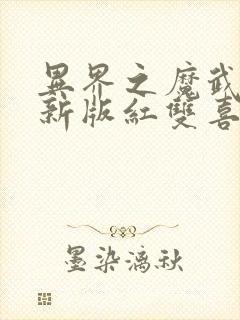 異界之魔武
新版紅雙喜
墨染漓秋